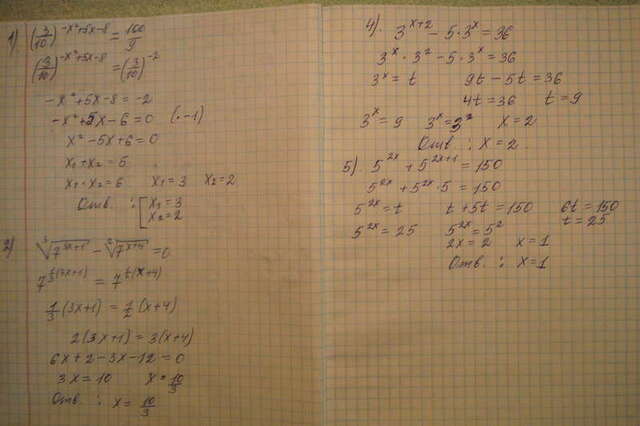 1) (3/10)^(-x²+5x-8) = 100/9
(3/10)^(-x²+5x-8) = (3/10)^(-2)
-x²+5x-8 = -2
-x²+5x-6=0 (·-1)
x²-5x+6=0
x₁+x₂=5
x₁·x₂=6 x₁=3 x₂=2
Отв. : [x₁=3
x₂=2
2) ³√(7^(3x+1)) - ²√(7^(x+4)) = 0
7^(1/3(3x+1)) = 7^(1/2(x+4))
1/3(3x+1) = 1/2(x+4)
2(3x+1) = 3(x+4)
6x+2-3x-12=0
3x=10 x=10/3
Отв. : x = 10/3
4). 3^(x+2) - 5·3^x = 36
3^x · 3² - 5·3^x = 36
3^x = t 9t-5t=36
4t=36 t=9
3^x=9 3^x=3² x=2
Отв. : x=2
5). 5^(2x) + 5^(2x+1) = 150
5^(2x) + 5^(2x)·5 = 150
5^(2x)=t t+5t=150 6t=150
t=25
5^(2x)=25 5^(2x)=5²
2x=2 x=1
Отв. : x=1